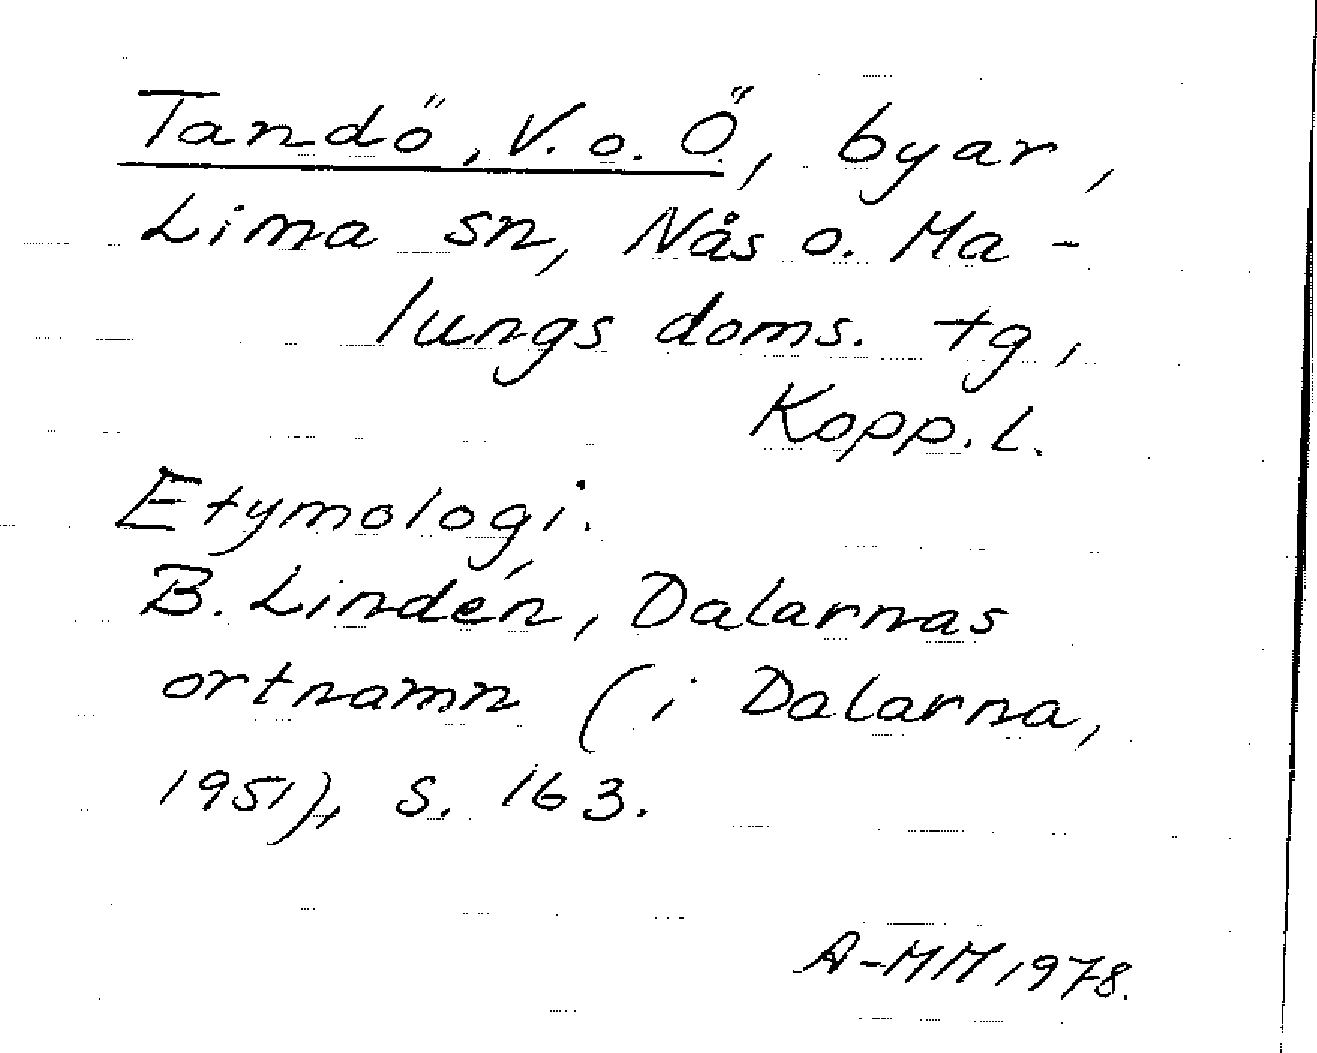 Tandö, V. o. Ö., byar,
Lima sn, Nås o. Ma-
lungs doms. tg,
Kopp. l.
Etymologi.
B. Lindén, Dalarnas
ortnamn (i Dalarna,
1951), s. 163.
A-MM 1978.